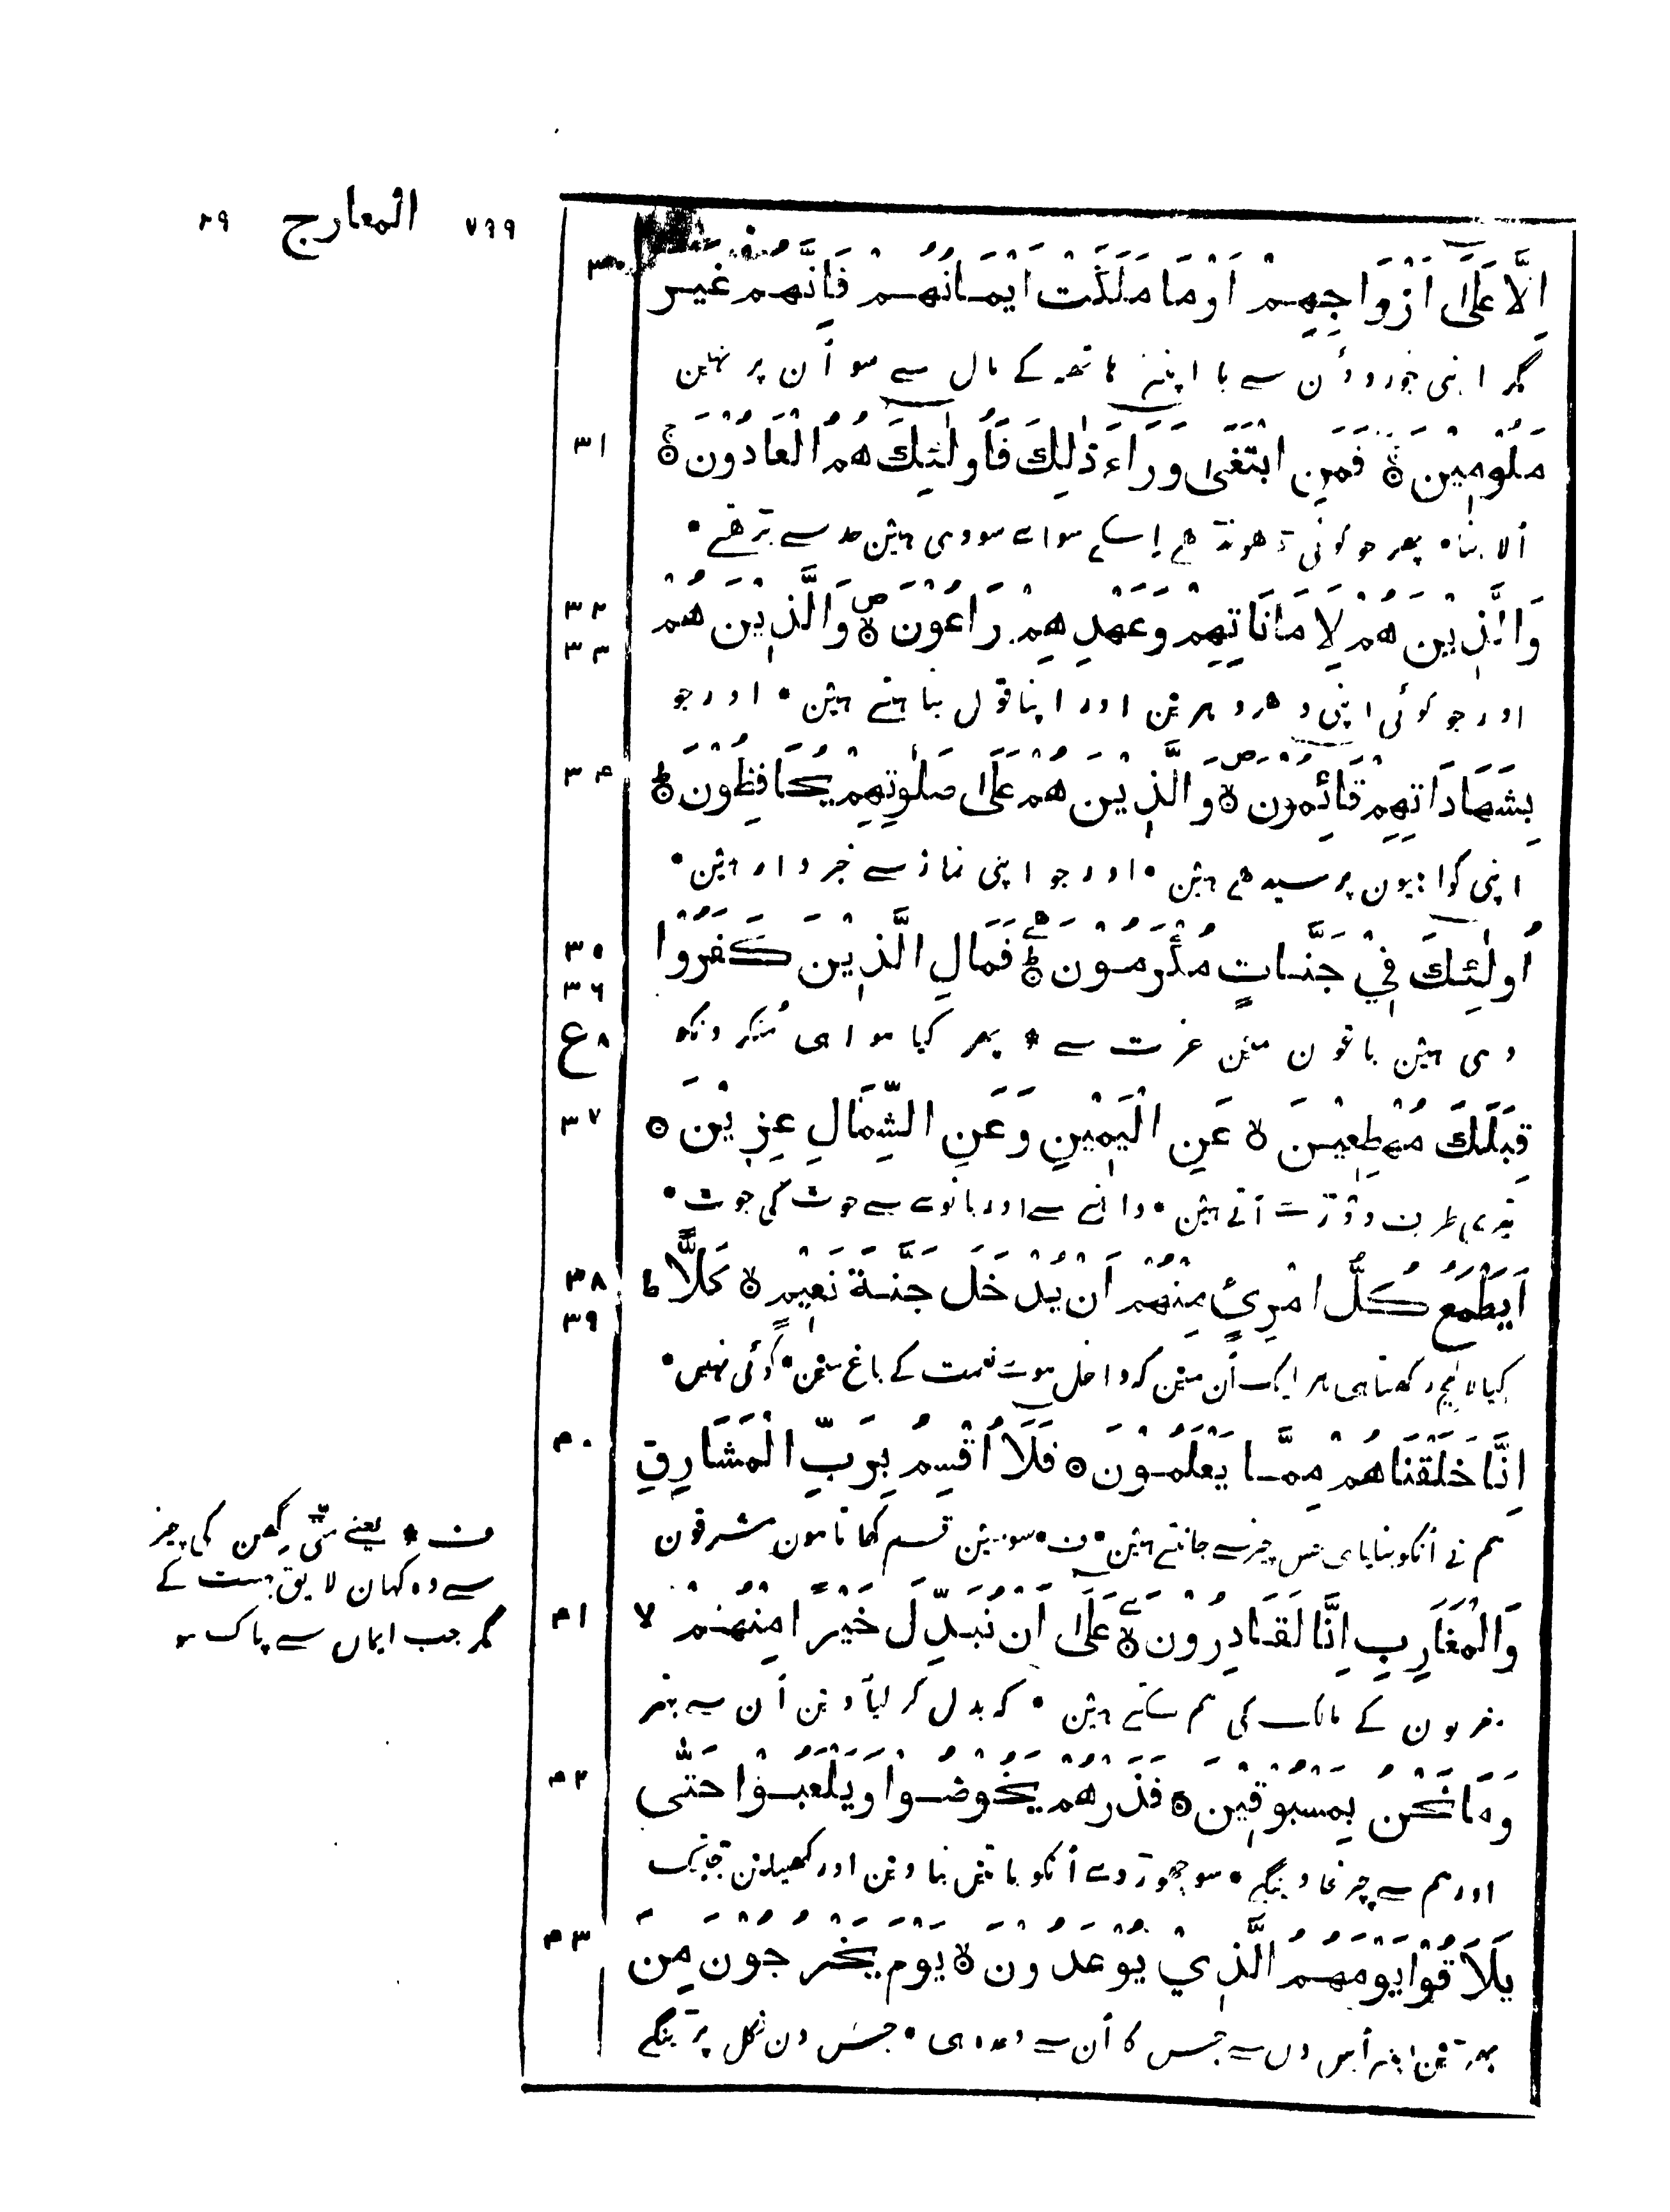 ٧٦٩ المعارج ٢٩
٣٠
اِلَّا عَلَىٰٓ اَزْوَاجِهِمْ اَوْ مَا مَلَكَتْ اَيْمَانُهُمْ فَاِنَّهُمْ غَيْرُ
مگر اپنی جوروؤن سے یا اپنے ہاتھ کے مال سے سو اُن پر نہین
٣١
مَلُوْمِيْنَ ۚ فَمَنِ ابْتَغَىٰ وَرَآءَ ذٰلِكَ فَاُولٰٓئِكَ هُمُ الْعَادُوْنَ ۚ
اُلاہنا • پھر جو کوئی ڈھونڈھے اِسکے سواے سو وہی ہین حد سے بڑھتے •
٣٢
٣٣
وَالَّذِيْنَ هُمْ لِاَمَانَاتِهِمْ وَعَهْدِهِمْ رَاعُوْنَ ۙ وَالَّذِيْنَ هُمْ
اور جو کوئی اپنی دھروہرین اور اپنا قول نباہتے ہین • اور جو
٣٤
بِشَهَادَاتِهِمْ قَآئِمُوْنَ ۙ وَالَّذِيْنَ هُمْ عَلَىٰ صَلٰوتِهِمْ يُحَافِظُوْنَ ۗ
اپنی گواہیون پر سیدھے ہین • اور جو اپنی نماز سے خبردار ہین •
٣٥
٣٦
اُولٰٓئِكَ فِيْ جَنَّاتٍ مُكْرَمُوْنَ ۗ فَمَالِ الَّذِيْنَ كَفَرُوْا
وہی ہین باغون مین عزت سے * پھر کیا ہوا ہی مُنکرونکو
ع ٨
٣٧
قِبَلَكَ مُهْطِعِيْنَ ۙ عَنِ الْيَمِيْنِ وَعَنِ الشِّمَالِ عِزِيْنَ ۝
تیری طرف دوڑتے آتے ہین • داہنے سے اور بانوے سے جوٹ کی جوٹ •
٣٨
٣٩
اَيَطْمَعُ كُلُّ امْرِئٍ مِنْهُمْ اَنْ يُدْخَلَ جَنَّةَ نَعِيْمٍ ۙ كَلَّا ط
کیا لالچ رکھتا ہی ہر ایک اُن مین کہ داخل ہووے نعمت کے باغ مین • کوئی نہین •
٤٠
اِنَّا خَلَقْنَاهُمْ مِمَّا يَعْلَمُوْنَ ۝ فَلَآ اُقْسِمُ بِرَبِّ الْمَشَارِقِ
ہم نے اُنکو بنایا ہی جس چیز سے جانتے ہین • ف • سو مین قسم کھاتا ہون مشرقون
ف * یعنے مٹی گھن کی چیز
سے وہ کہان لایق بہشت کے
مگر جب ایمان سے پاک ہو
٤١
وَالْمَغَارِبِ اِنَّا لَقَادِرُوْنَ ۙ عَلَىٰٓ اَنْ نُبَدِّلَ خَيْرًا مِنْهُمْ لا
مغربون کے مالک کی ہم سکتے ہین • کہ بدل کر لیاوین اُن سے بہتر
٤٢
وَمَا نَحْنُ بِمَسْبُوْقِيْنَ ۝ فَذَرْهُمْ يَخُوْضُوْا وَيَلْعَبُوْا حَتّٰى
اور ہم سے چڑ نجاوینگے • سو چھوڑ دے اُنکو باتین بناوین اور کھیلین جبتک
٤٣
يُلَاقُوْا يَوْمَهُمُ الَّذِيْ يُوْعَدُوْنَ ۙ يَوْمَ يَخْرُجُوْنَ مِنَ
بھڑین اپنے اُس دن سے جس کا اُن سے وعدہ ہی • جس دن نکل پڑینگے